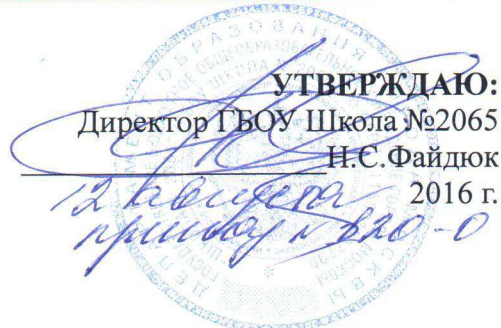 УТВЕРЖДАЮ:
Директор ГБОУ Школа №2065
Н.С.Файдюк
12 августа 2016 г.
приказ № 820-О